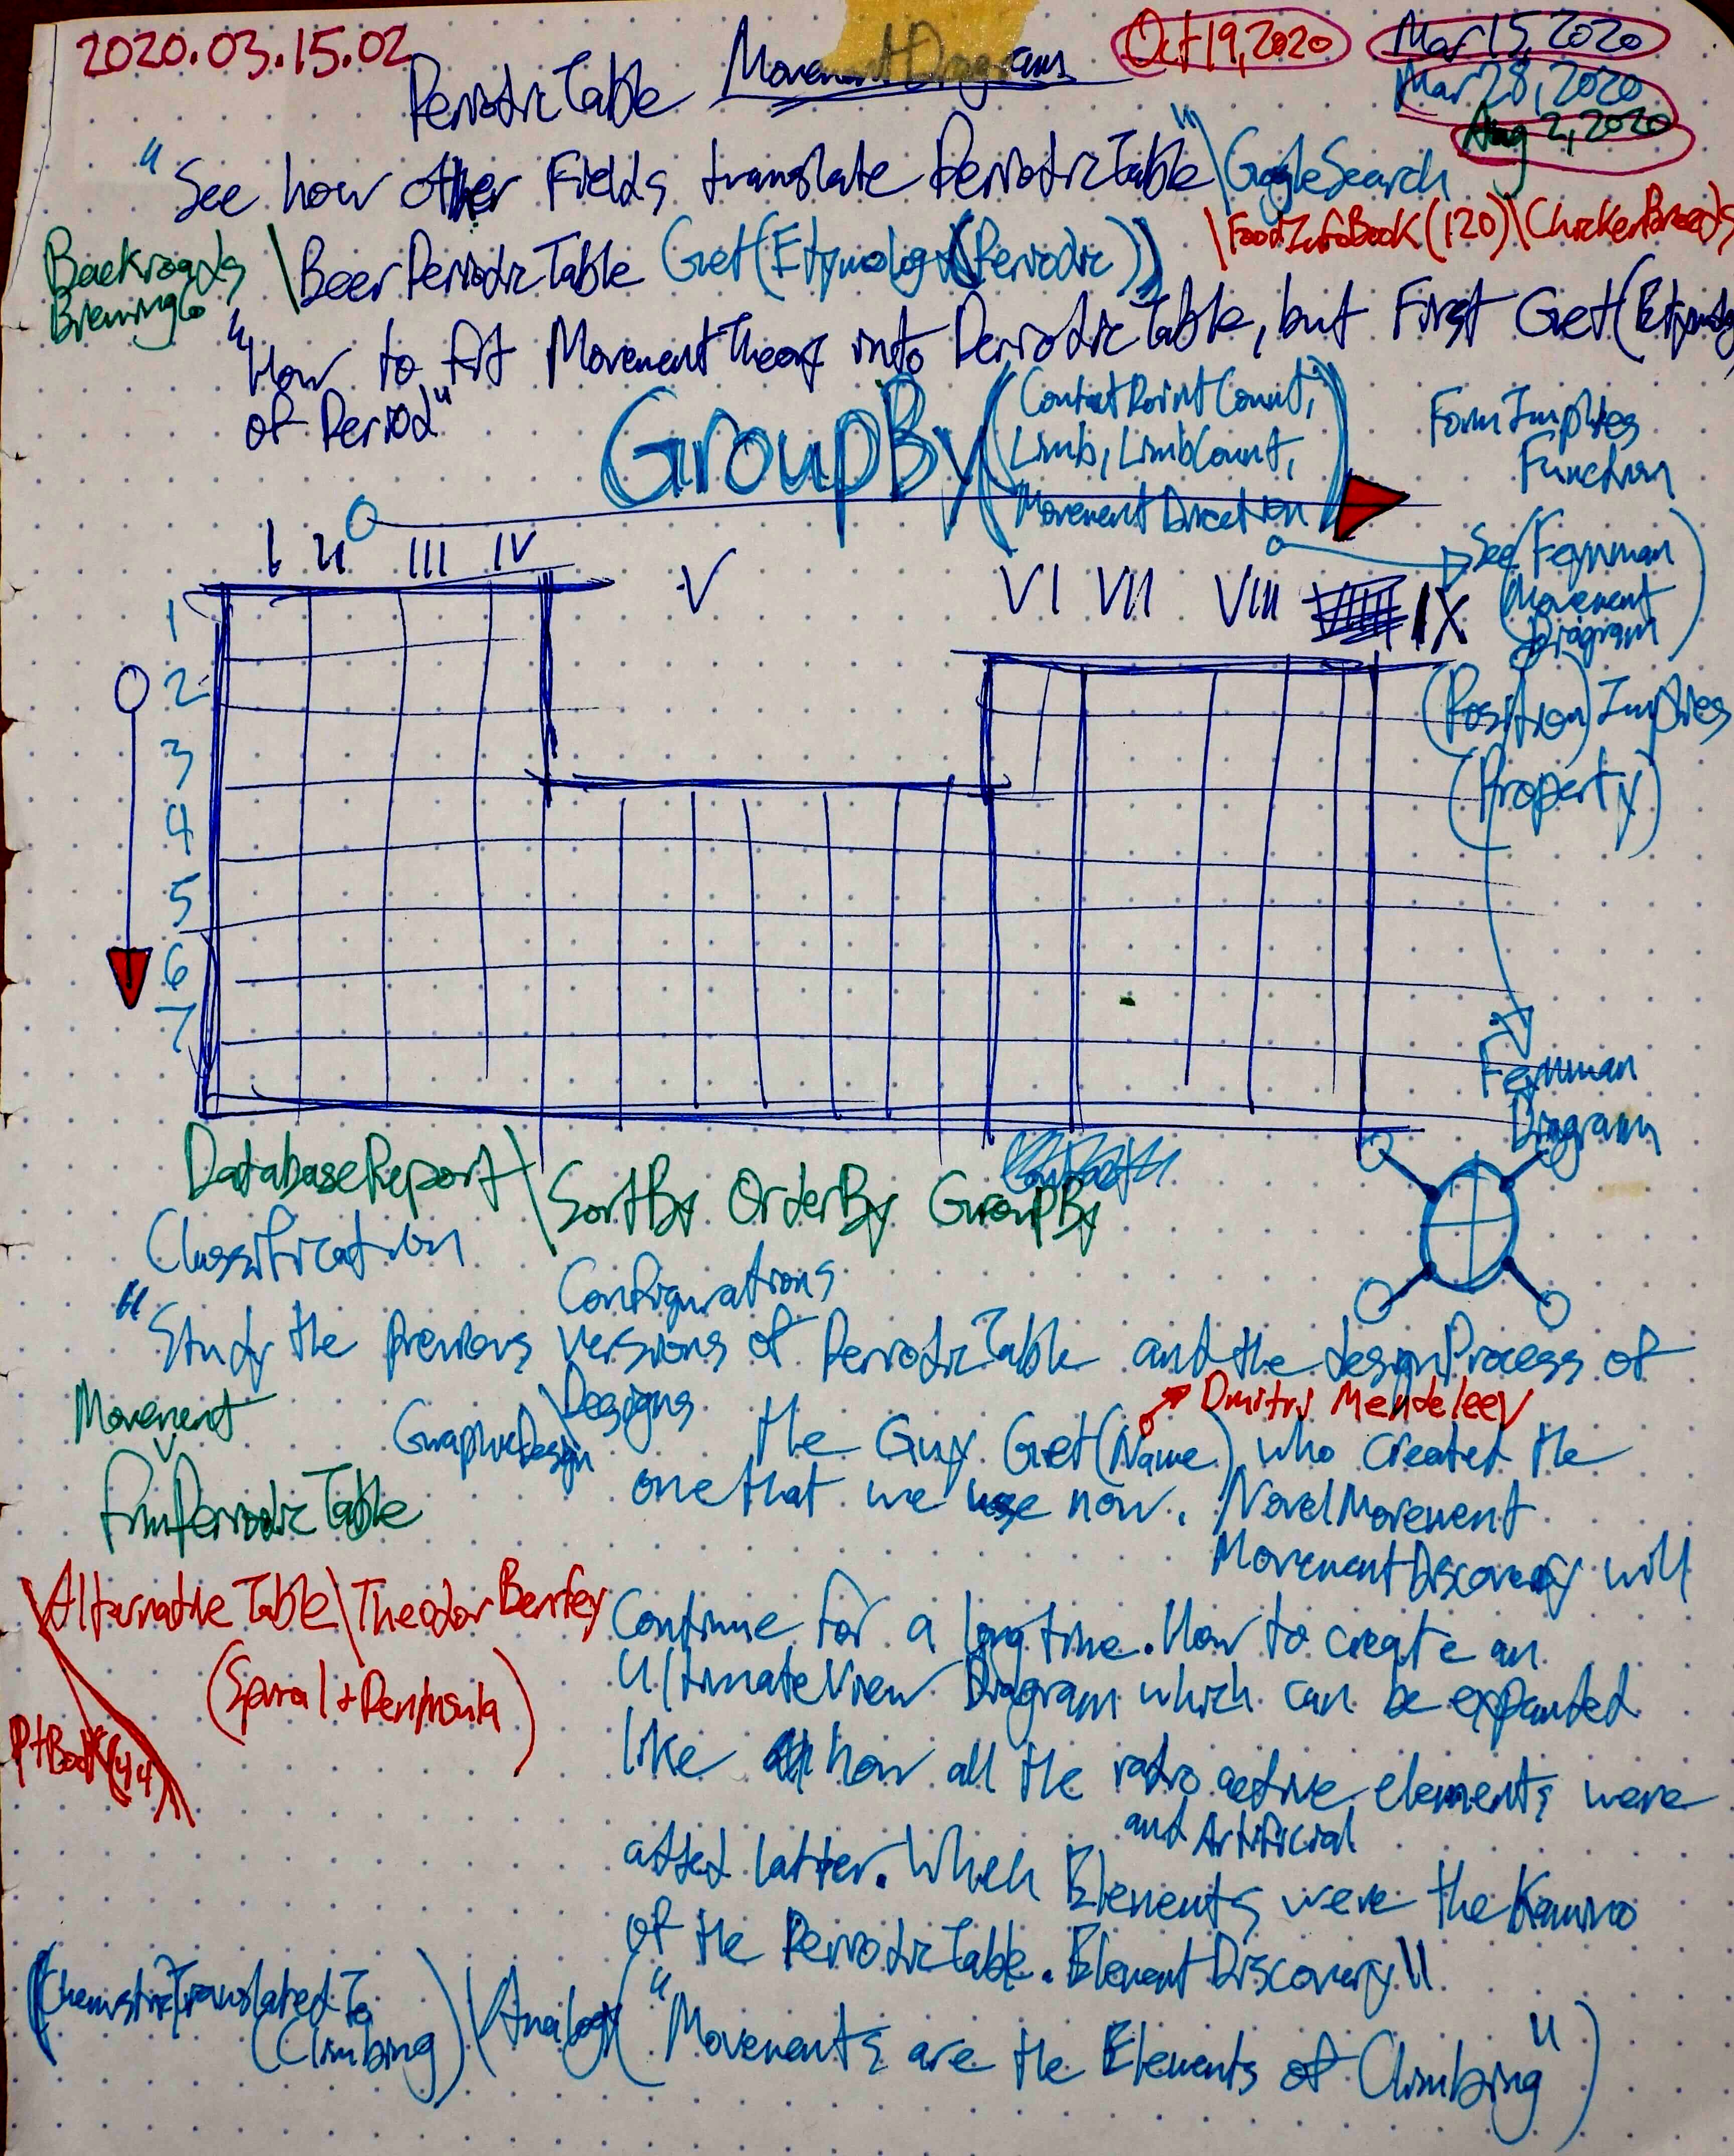 2020.03.15.02
Oct 19, 2020
Mar 15, 2020
PeriodicTable MovementDiagram
Mar 28, 2020
Aug 2, 2020
"See how other Fields translate PeriodicTable"\GoogleSearch
\FoodInfoBook(120)\ChickenBreeds
Backroads
BrewingCo
\BeerPeriodicTable Get(Etymology(Periodic))
"How to fit MovementTheory into PeriodicTable, but First Get(Etymology
of Period"
GroupBy(ContactPointCount,
Limb, LimbCount,
MovementDirection)
FormImplies
Function
I II III IV V VI VII VIII IX
See(Feynman
Movement
Diagram)
1
2
3
4
5
6
7
(Position)Implies
(Property)
Feynman
Diagram
DatabaseReport\SortBy OrderBy GroupBy
Classification
Configurations
"Study the previous versions of PeriodicTable and the designProcess of
\Designs
Dmitri Mendeleev
Movement
GraphicDesign
the Guy Get(Name) who created the
PeriodicTable
one that we use now. NovelMovement
MovementDiscovery will
AlternativeTable\Theodor Benfey
Continue for a long time. How to create an
(Spiral + Peninsula)
UltimateView Diagram which can be expanded
PtBook(44)
like how all the radioactive elements were
and Artificial
added latter. Which Elements were the Kamino
of the PeriodicTable. ElementDiscovery"
(ChemistryTranslatedTo
(Climbing)\Analogy("Movements are the Elements of Climbing")